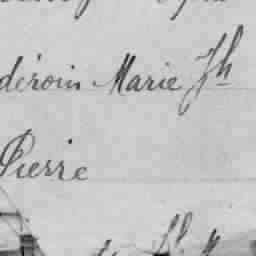 déroin Marie Jh
Pierre